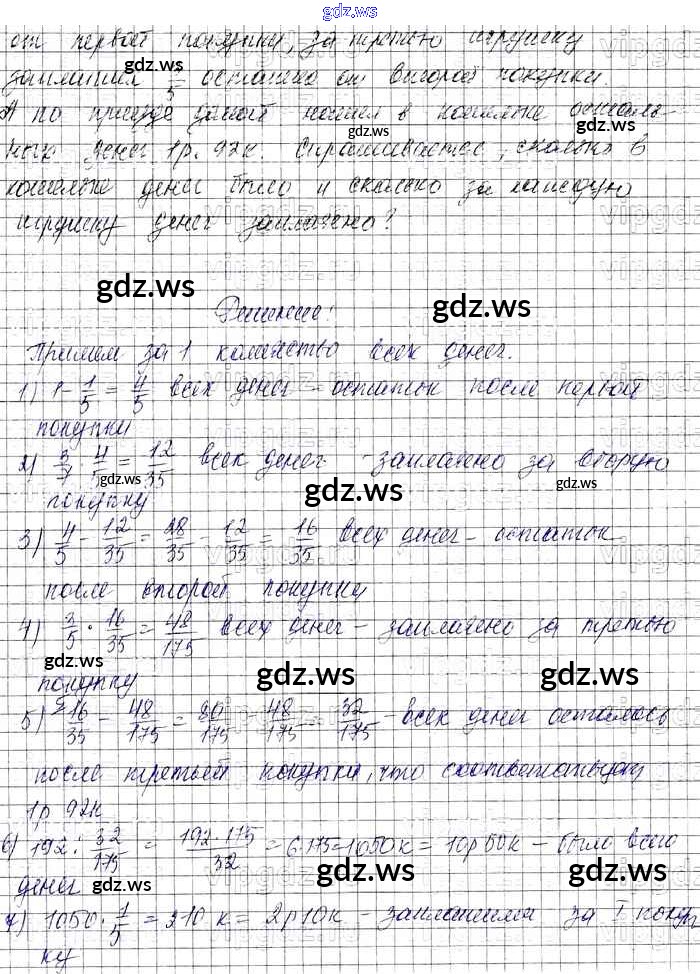 gdz.ws
от первой покупки, за третью игрушку
заплатил 3/5 остатка от второй покупки.
А по приезде домой нашел в кошельке осталь-
ных денег 1р. 92к. Спрашивается, сколько в
кошельке денег было и сколько за каждую
игрушку денег заплачено?
Решение:
Примем за 1 количество всех денег.
1) 1 - 1/5 = 4/5 всех денег - остаток после первой
покупки
2) 3/7 · 4/5 = 12/35 всех денег - заплачено за вторую
покупку
3) 4/5 - 12/35 = 28/35 - 12/35 = 16/35 всех денег - остаток
после второй покупки
4) 3/5 · 16/35 = 48/175 всех денег - заплачено за третью
покупку
5) 16/35 - 48/175 = 80/175 - 48/175 = 32/175 - всех денег осталось
после третьей покупки, что соответствует
1р 92к
6) 192 : 32/175 = 192·175/32 = 6·175 = 1050к = 10р 50к - было всего
денег
7) 1050 · 1/5 = 210 к = 2р 10к - заплатили за I покуп
ку